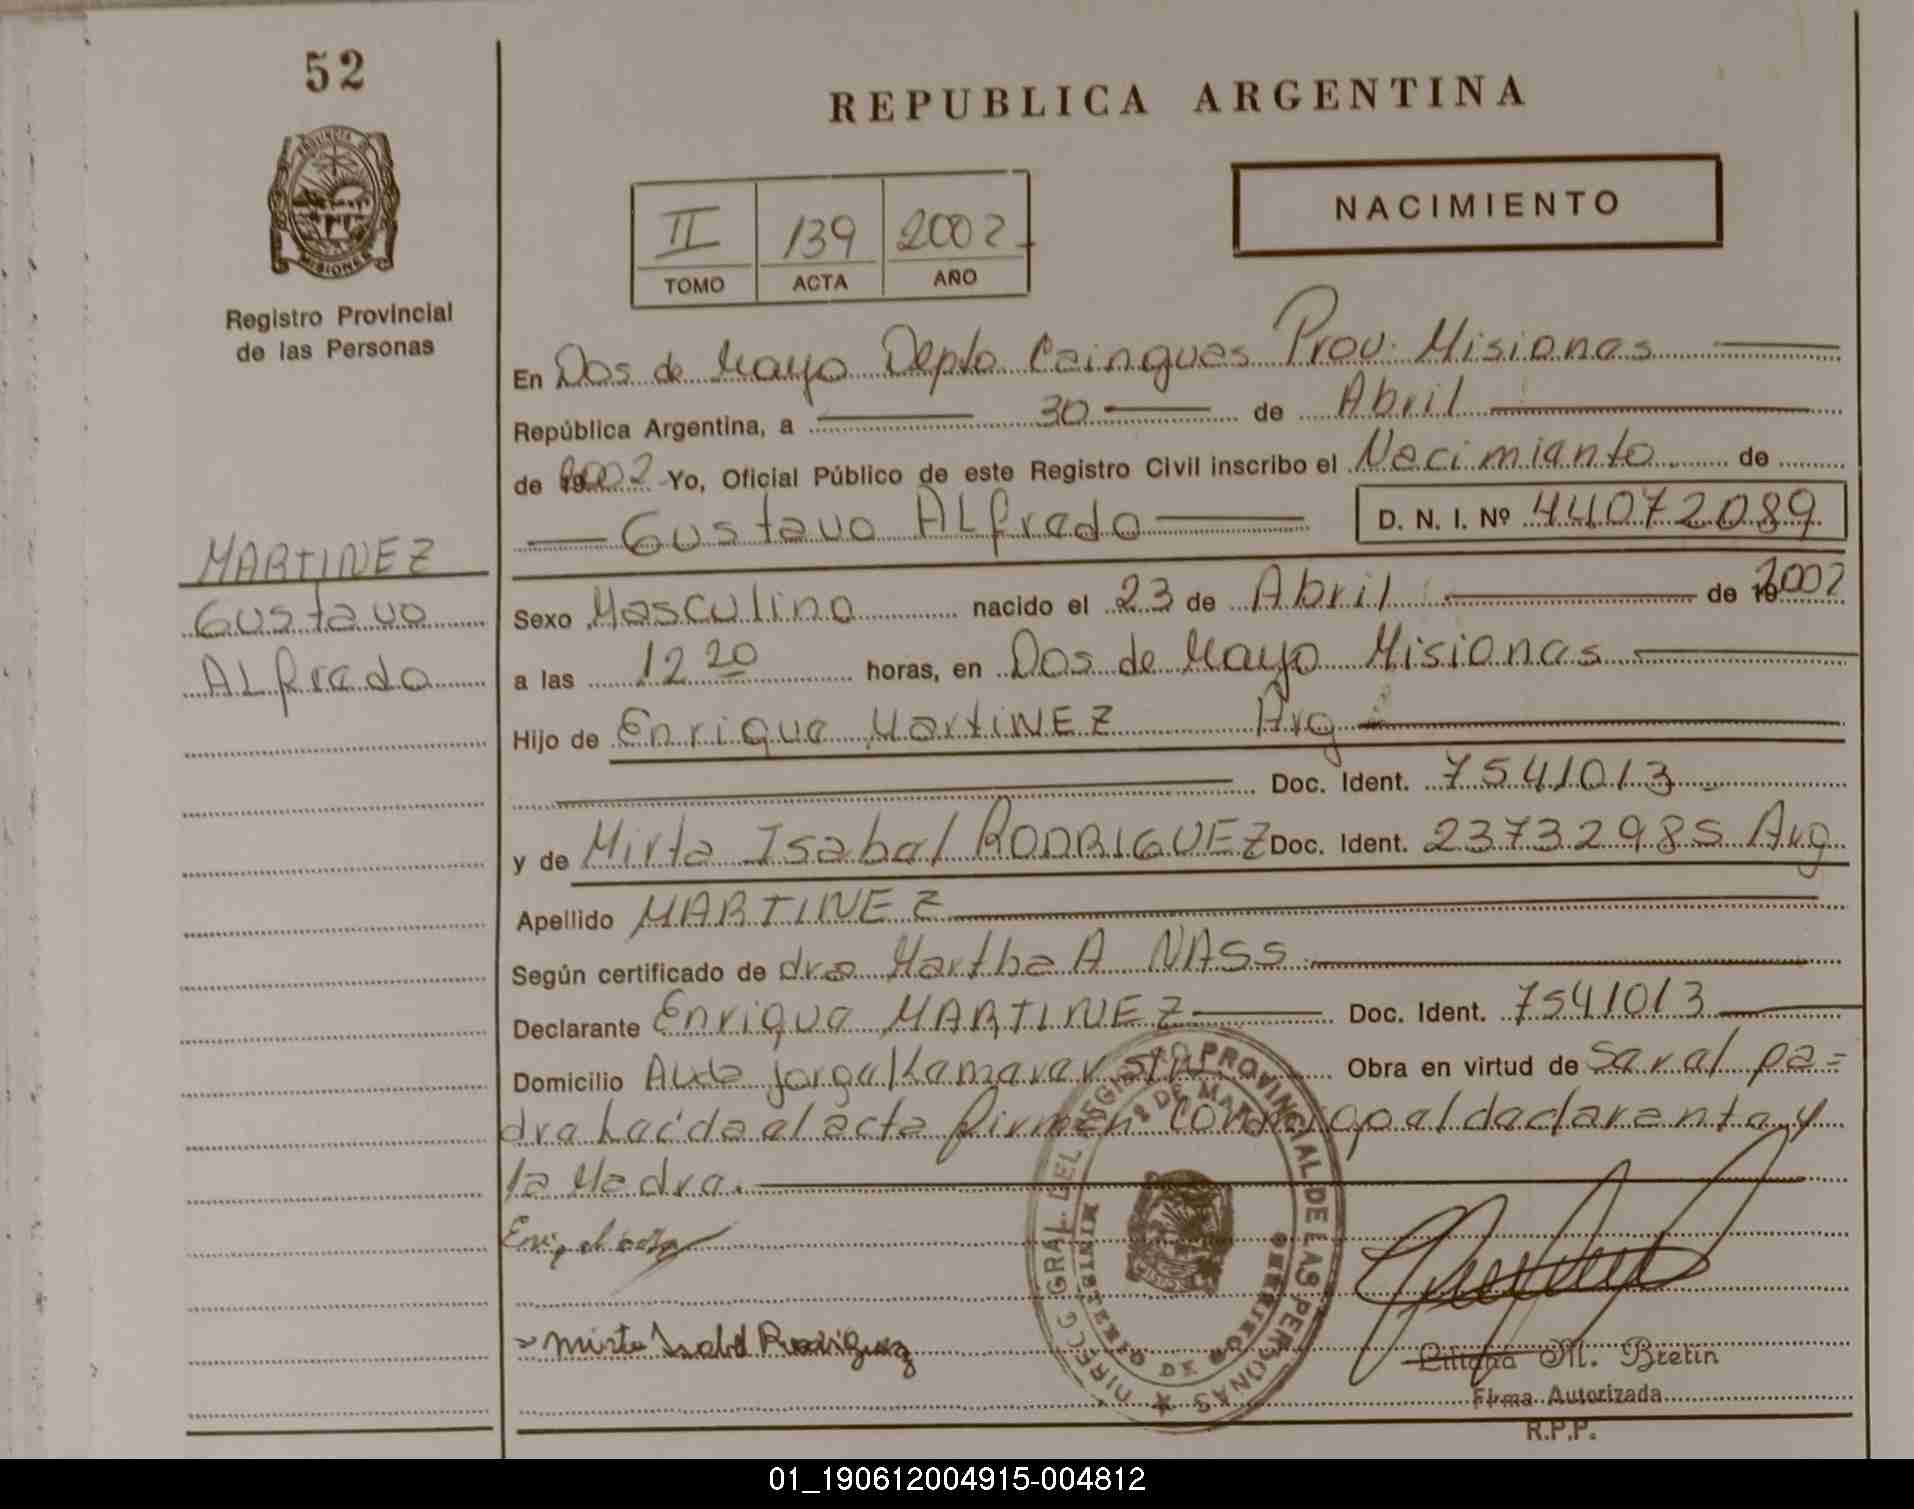 52
PROVINCIA D
MISIONES
Registro Provincial
de las Personas
MARTINEZ
Gustavo
ALfredo
REPUBLICA ARGENTINA
NACIMIENTO
II 139 2002
TOMO ACTA AÑO
En Dos de Mayo Depto Caingues Prov. Misiones
República Argentina, a 30 de Abril
de 2002 Yo, Oficial Público de este Registro Civil inscribo el Necimiento de
Gustavo ALfredo D. N. I. Nº 44072089
Sexo Masculino nacido el 23 de Abril de 2002
a las 12 20 horas, en Dos de Mayo Misiones
Hijo de Enrique MartiNEZ Arg
Doc. Ident. 7541013
y de Mirta Isabel RODRIGUEZ Doc. Ident. 23732985 Arg
Apellido MARTINEZ
Según certificado de dra Martha A NASS
Declarante Enrique MARTINEZ Doc. Ident. 7541013
Domicilio Avda jorge Kamarer s/n Obra en virtud de Ser el pa=
dre Leída el acta firman conmigo el declarante y
la Madre.
Mirta Isabel Rodriguez
DIRECC GRAL DEL REGISTRO PROVINCIAL DE LAS PERSONAS
2 DE MAYO
MINISTERIO DE GOBIERNO
Liliana M. Bretin
Firma Autorizada
R.P.P.
01_190612004915-004812